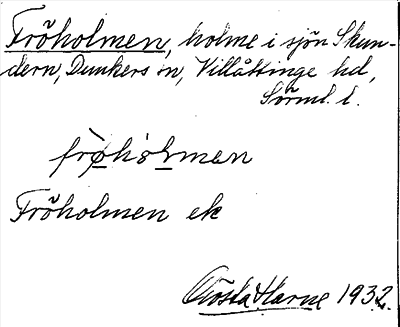 Fröholmen, holme i sjön Skun-
dern, Dunkers sn, Villåttinge hd,
Sörml. l.
frøhòlmen
Fröholmen ek
Gösta Harne 1932.